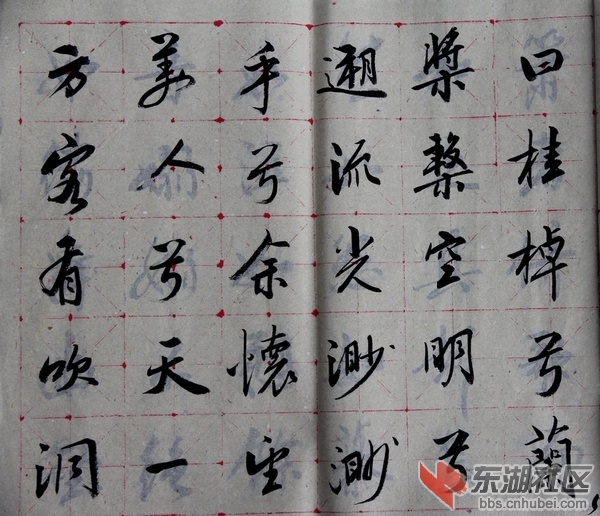 曰桂棹兮蘭
槳擊空明兮
遡流光渺渺
手兮余懷望
美人兮天一
方客有吹洞
东湖社区
bbs.cnhubei.com